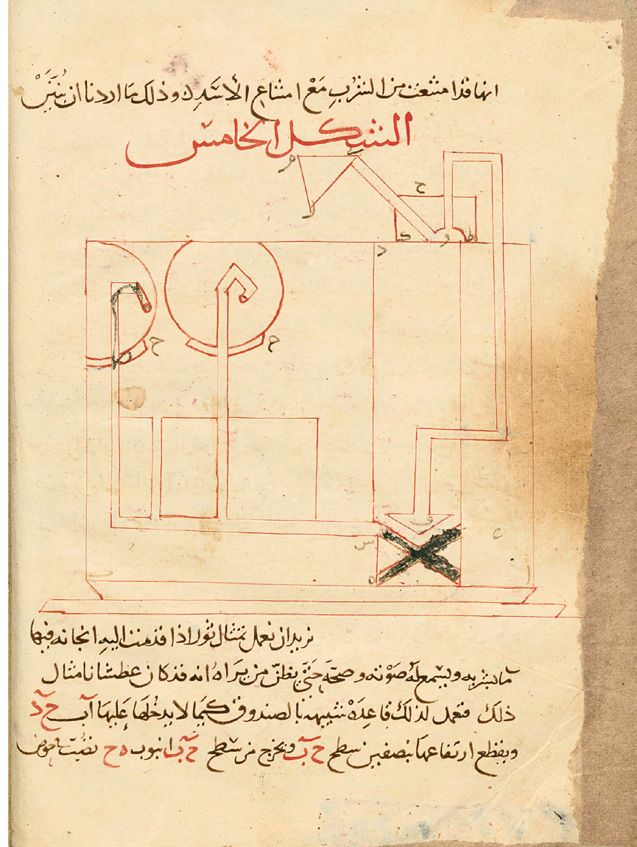 انها قد امتنعت من الشرب مع امتناع الأسد وذلك ما اردنا ان نبين
الشكل الخامس
م
ح
ط
و
ك
د
ح
ح
ف
س
ه
نريد ان نعمل تمثال ثور اذا قدمت اليه اجانة فيها
ما يشربه ويسمع له صوته وصيحة حتى يظن من يراه انه قد كان عطشانا مثال
ذلك فنعمل لذلك قاعدة شبيهة بالصندوق كيما لا يدخلها عليها آب ح د
ويقطع ارتفاعها بنصفين سطح ح آب ويخرج من سطح ح آب انبوب ه ح